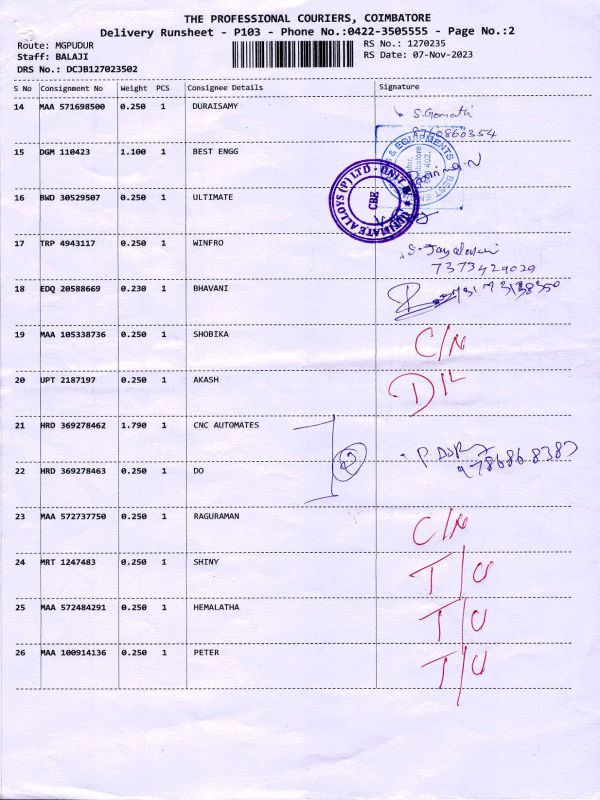 THE PROFESSIONAL COURIERS, COIMBATORE
Delivery Runsheet - P103 - Phone No.:0422-3505555 - Page No.:2
Route: MGPUDUR
RS No.: 1270235
Staff: BALAJI
RS Date: 07-Nov-2023
DRS No.: DCJB127023502
S No Consignment No Weight PCS Consignee Details Signature
14 MAA 571698500 0.250 1 DURAISAMY S. Gomathi
8760860354
15 DGM 110423 1.100 1 BEST ENGG
16 BWD 30529507 0.250 1 ULTIMATE
ULTIMATE ALLOYS (P) LTD - UNIT
CBE
17 TRP 4943117 0.250 1 WINFRO
7373429029
18 EDQ 20588669 0.230 1 BHAVANI
19 MAA 105338736 0.250 1 SHOBIKA C/N
20 UPT 2187197 0.250 1 AKASH D/L
21 HRD 369278462 1.790 1 CNC AUTOMATES
22 HRD 369278463 0.250 1 DO
23 MAA 572737750 0.250 1 RAGURAMAN C/N
24 MRT 1247483 0.250 1 SHINY T/U
25 MAA 572484291 0.250 1 HEMALATHA T/U
26 MAA 100914136 0.250 1 PETER T/U